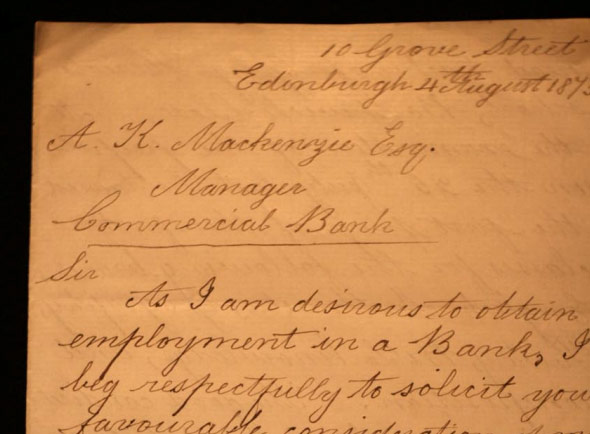 10 Grove Street
Edinburgh 4th August 187
A. K. Mackenzie Esq.
Manager
Commercial Bank
Sir
As I am desirous to obtain
employment in a Bank, I
beg respectfully to solicit you
favourable consideration